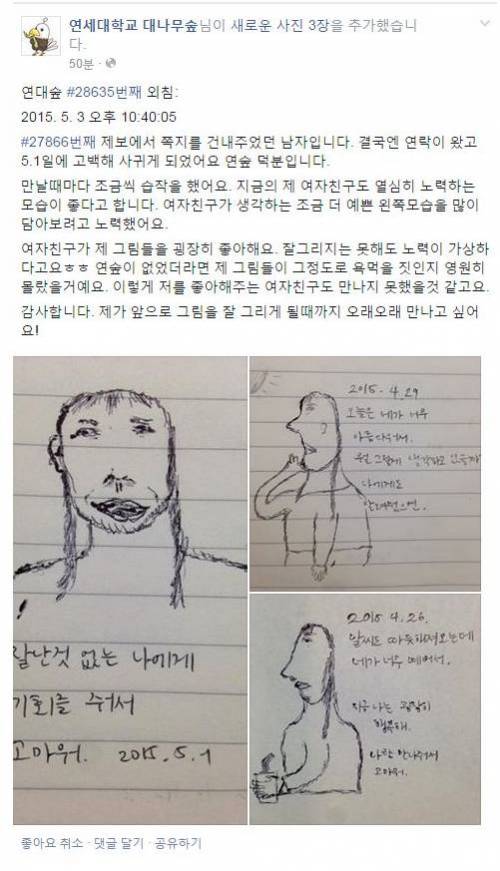 연세대학교 대나무숲님이 새로운 사진 3장을 추가했습니
다.
50분 ·
연대숲 #28635번째 외침:
2015. 5. 3 오후 10:40:05
#27866번째 제보에서 쪽지를 건내주었던 남자입니다. 결국엔 연락이 왔고
5.1일에 고백해 사귀게 되었어요 연숲 덕분입니다.
만날때마다 조금씩 습작을 했어요. 지금의 제 여자친구도 열심히 노력하는
모습이 좋다고 합니다. 여자친구가 생각하는 조금 더 예쁜 왼쪽모습을 많이
담아보려고 노력했어요.
여자친구가 제 그림들을 굉장히 좋아해요. 잘그리지는 못해도 노력이 가상하
다고요ㅎㅎ 연숲이 없었더라면 제 그림들이 그정도로 욕먹을 짓인지 영원히
몰랐을거예요. 이렇게 저를 좋아해주는 여자친구도 만나지 못했을것 같고요.
감사합니다. 제가 앞으로 그림을 잘 그리게 될때까지 오래오래 만나고 싶어
요!
잘난것 없는 나에게
기회를 줘서
고마워. 2015.5.1
2015. 4.29
오늘은 네가 너무
아름다워서.
무얼 그렇게 생각하고 있을까
나에게도
알려줬으면.
2015 4.26.
날씨도 따뜻해져오는데
네가 너무 예뻐서.
지금 나는 굉장히
행복해.
나랑 만나줘서
고마워.
좋아요 취소 · 댓글 달기 · 공유하기